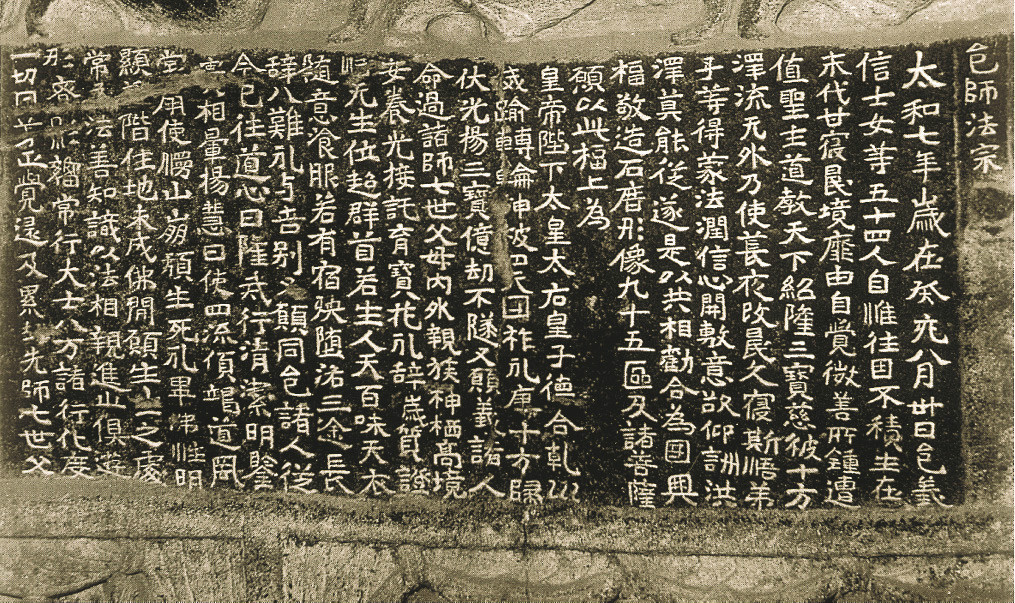 邑師法宗
太和七年歲在癸亥八月卅日邑義
信士女等五十四人自惟往因不積生在
末代甘寢昬境靡由自覺微善所鍾遭
值聖主道教天下紹隆三寶慈被十方
澤流无外乃使長夜改昬久寢斯悟弟
子等得蒙法潤信心開敷意欲仰詶洪
澤莫能從遂是以共相勸合為國興
福敬造石廟形像九十五區及諸菩薩
願以此福上為
皇帝陛下太皇太后皇子德合乾巛
威踰轉輪神被四天國祚永康十方歸
伏光揚三寶億劫不隧又願義諸人
命過諸師七世父母內外親族神栖高境
安養光接託育寶花永辞穢質證
悟无生位超群首若生人天百味天衣
隨意飡服若有宿殃墮洛三途長
辞八難永与苦別又願同邑諸人從
今已往道心日隆戒行清潔明鑒
相暈揚慧日使四流傾竭道風
堂用使慢山崩頹生死永畢佛性明
顯階住地未成佛間願生生之處
常為法善知識以法相親進止俱遊
形容常行大士八方諸行化度
一切同正覺逮及累先師七世父